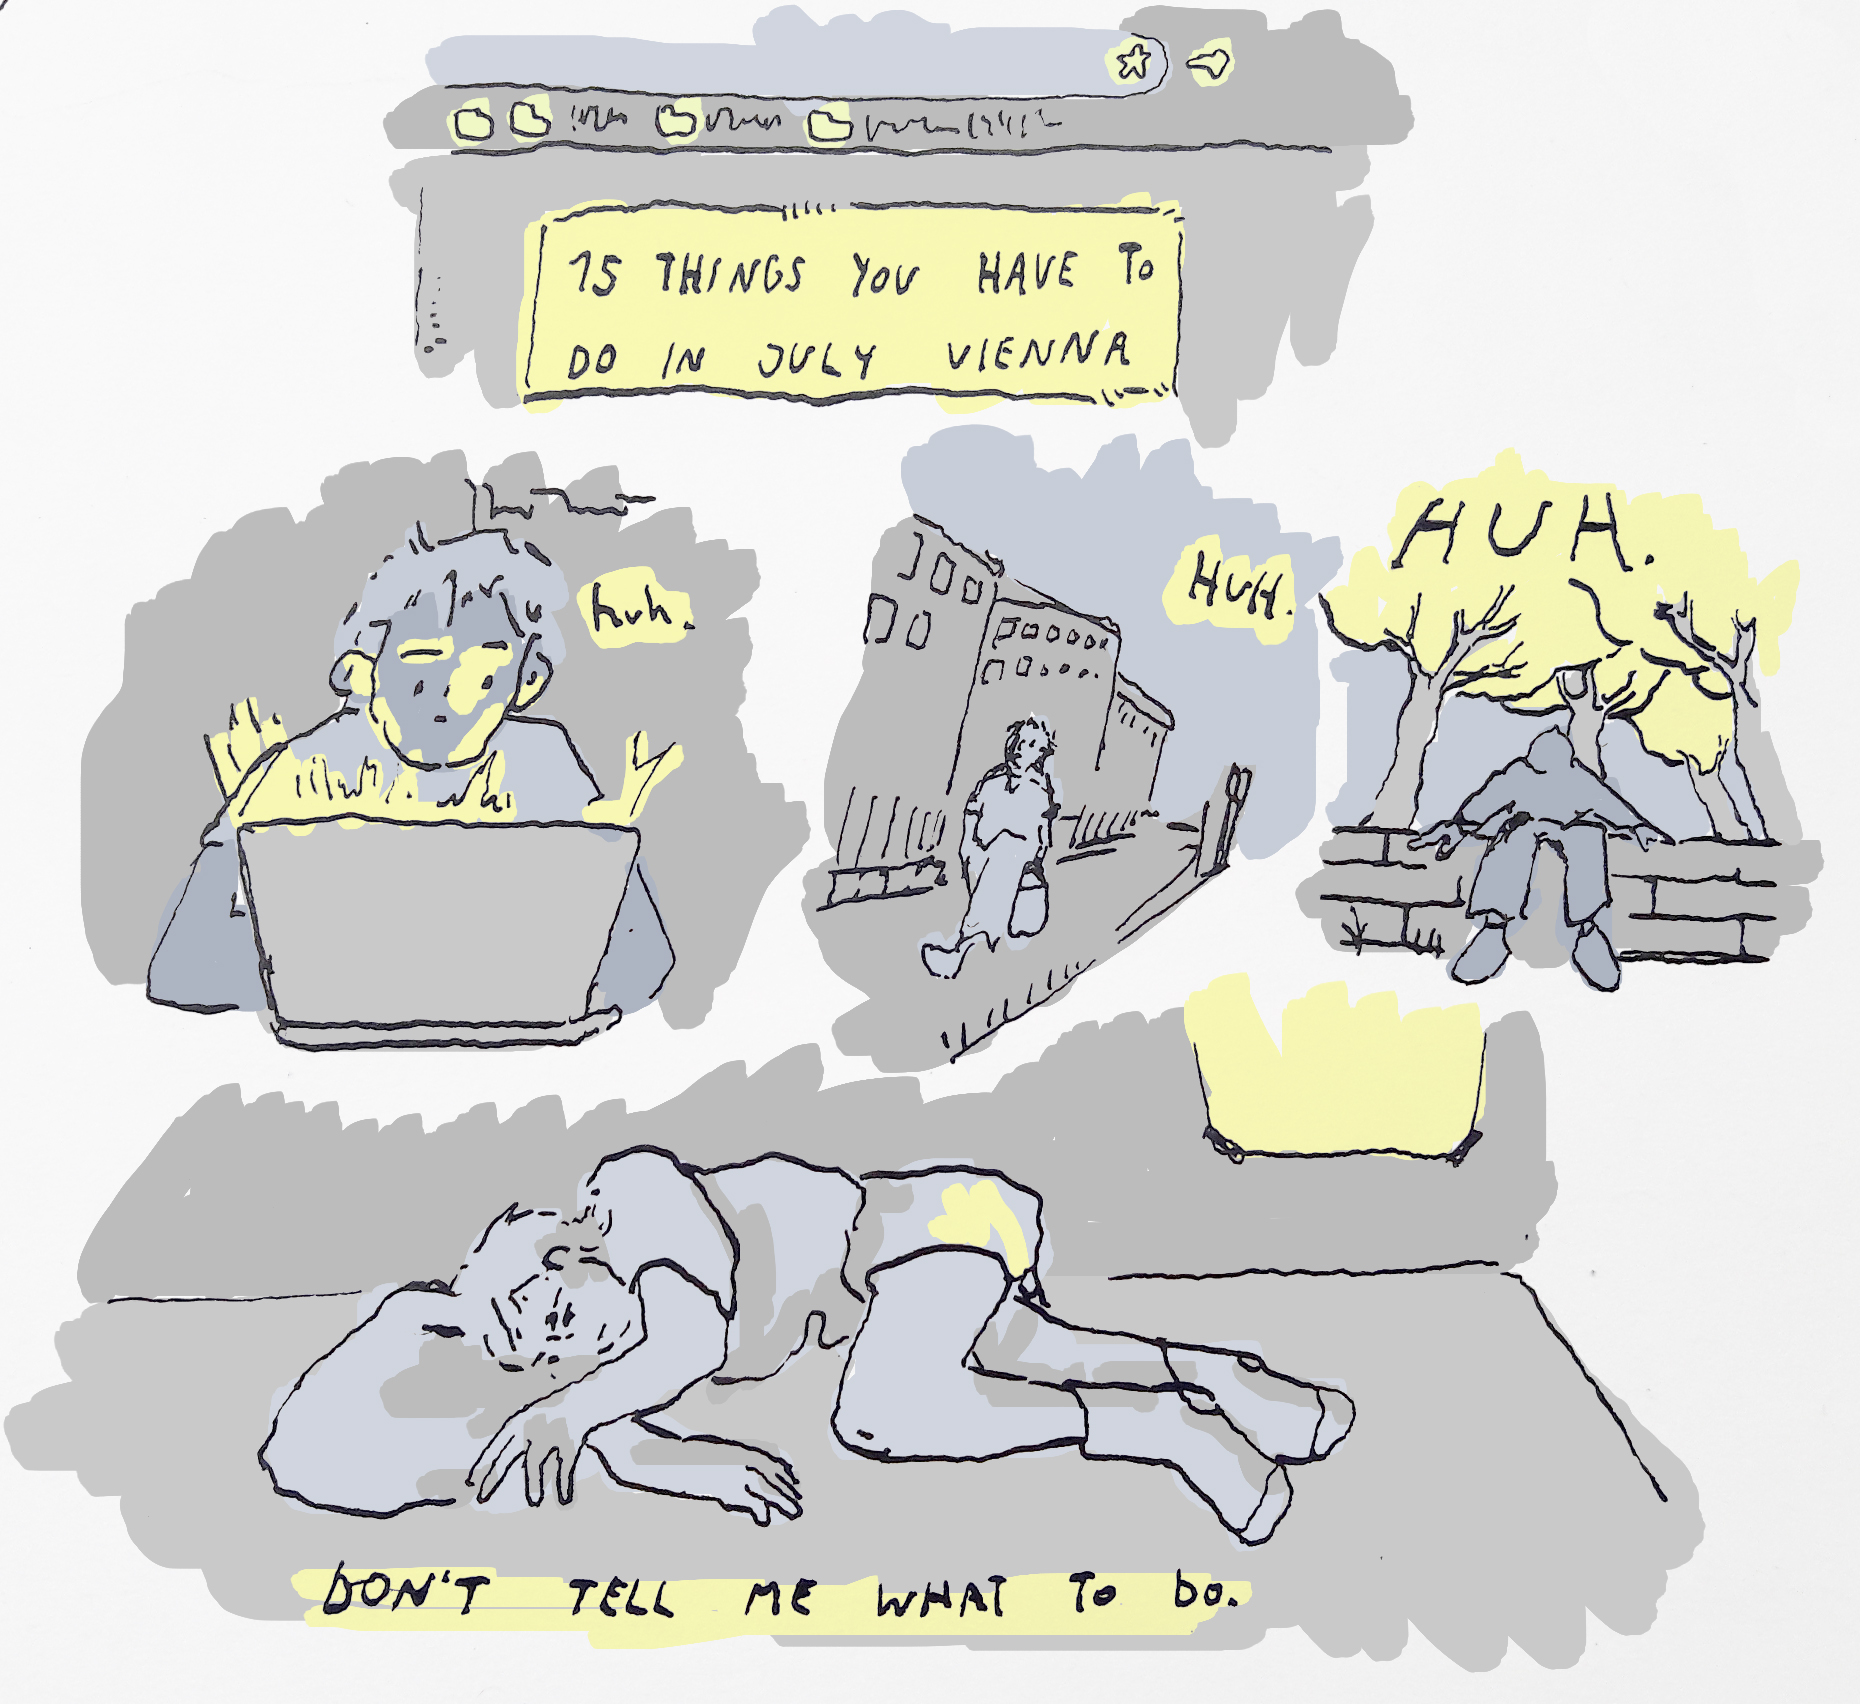 15 THINGS YOU HAVE TO
DO IN JULY VIENNA
huh.
HUH.
HUH.
DON'T TELL ME WHAT TO DO.